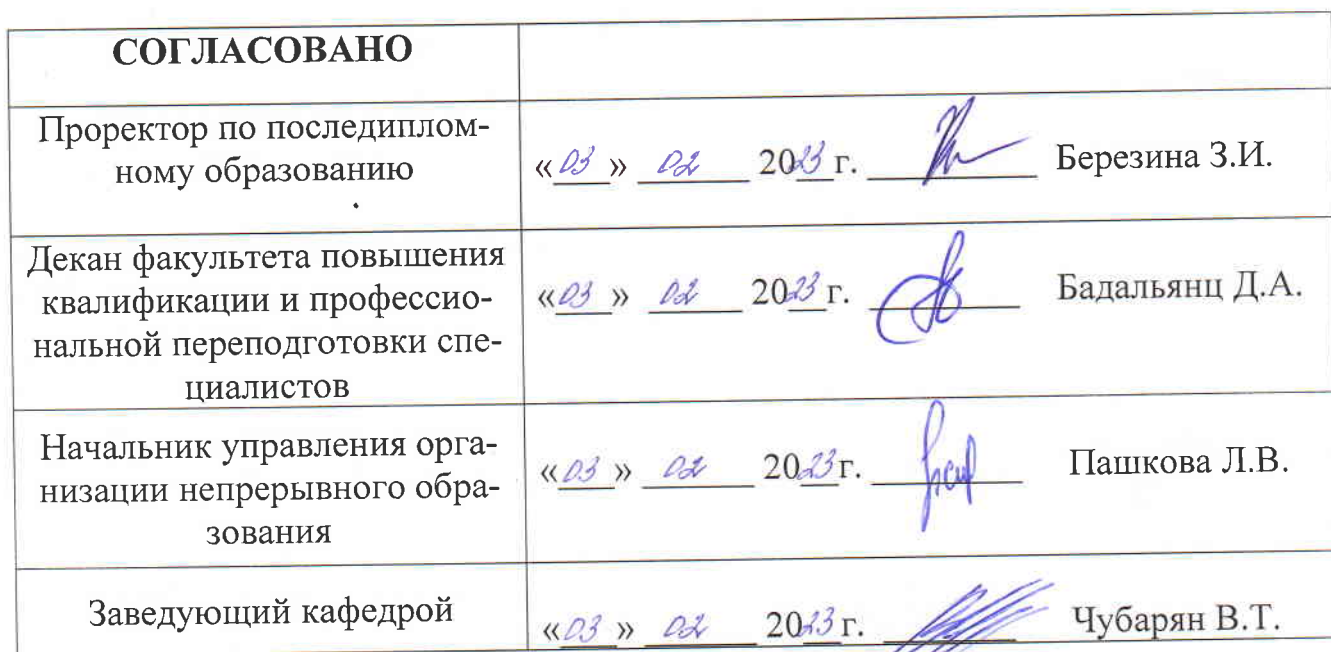 СОГЛАСОВАНО
Проректор по последиплом-
ному образованию
«03» 02 2023 г. Березина З.И.
Декан факультета повышения
квалификации и профессио-
нальной переподготовки спе-
циалистов
«03» 02 2023 г. Бадальянц Д.А.
Начальник управления орга-
низации непрерывного обра-
зования
«03» 02 2023г. Пашкова Л.В.
Заведующий кафедрой
«03» 02 2023 г. Чубарян В.Т.